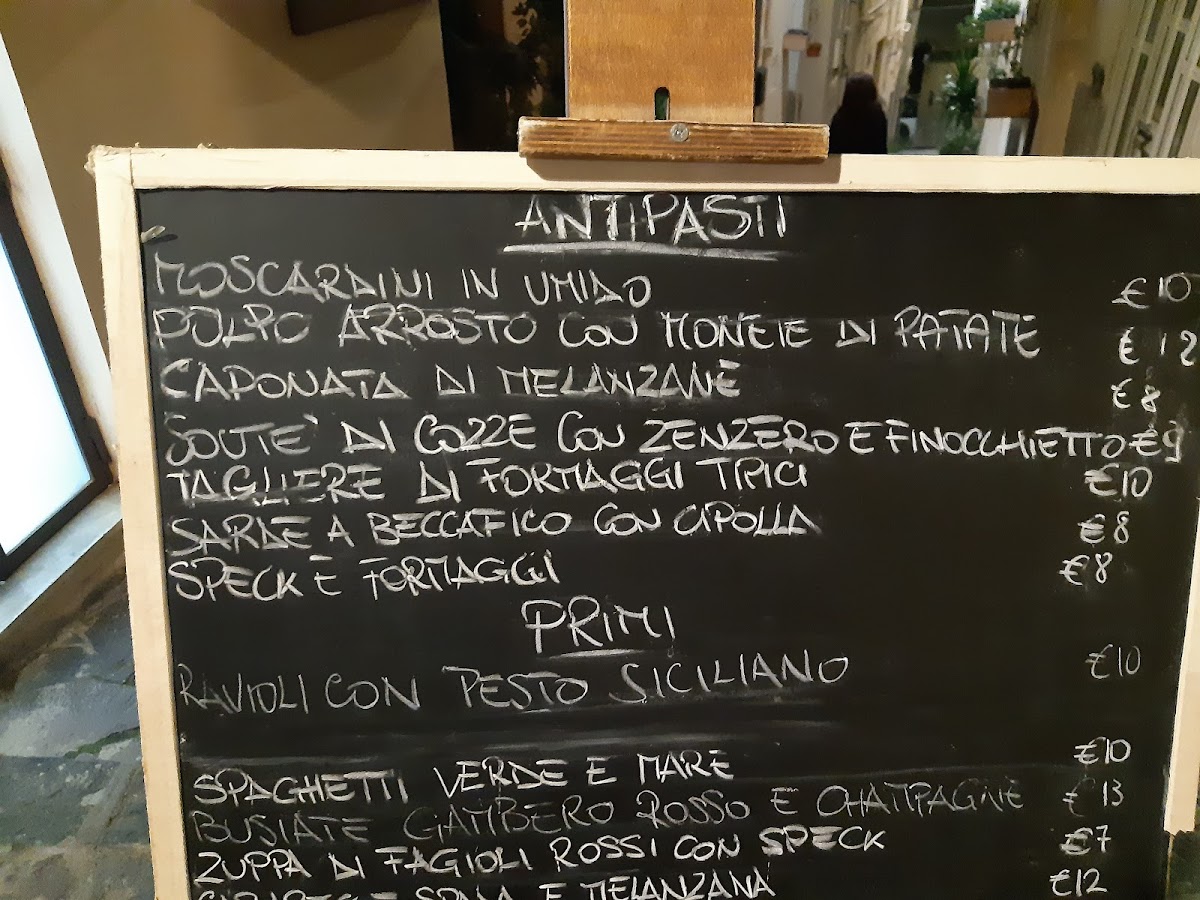 ANTIPASTI
MOSCARDINI IN UMIDO €10
POLPO ARROSTO CON MONETE DI PATATE €12
CAPONATA DI MELANZANE €8
SOUTE' DI COZZE CON ZENZERO E FINOCCHIETTO €9
TAGLIERE DI FORMAGGI TIPICI €10
SARDE A BECCAFICO CON CIPOLLA €8
SPECK E FORMAGGI €8
PRIMI
RAVIOLI CON PESTO SICILIANO €10
SPAGHETTI VERDE E MARE €10
BUSIATE GAMBERO ROSSO E CHAMPAGNE €13
ZUPPA DI FAGIOLI ROSSI CON SPECK €7
SPADA E MELANZANA €12